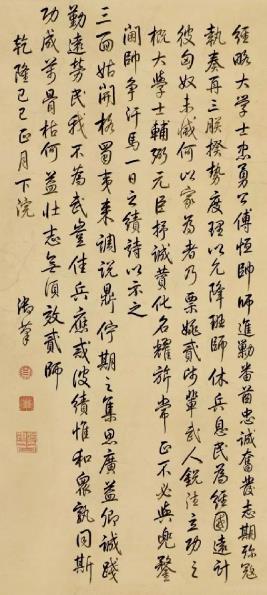 經略大学士忠勇公傅恒帥師進勦番酋忠誠奮發志期殄寇
執奏再三朕揆勢度理以允降班師休兵息民為經國遠計
彼匈奴未滅何以家為者乃票姚貳師輩武人銳徃立功之
概大學士輔弼元臣抒誠贊化名耀旂常正不必與兜鍪
閫帥爭汗馬一日之績詩以示之
三面姑開格蜀夷来調說鼎佇期之集思廣益卿誠踐
勤遠勞民我不為武豈佳兵應戒彼績惟和衆孰同斯
功成萬骨枯何益壯志無須效貳師
乾隆己巳正月下浣
御筆